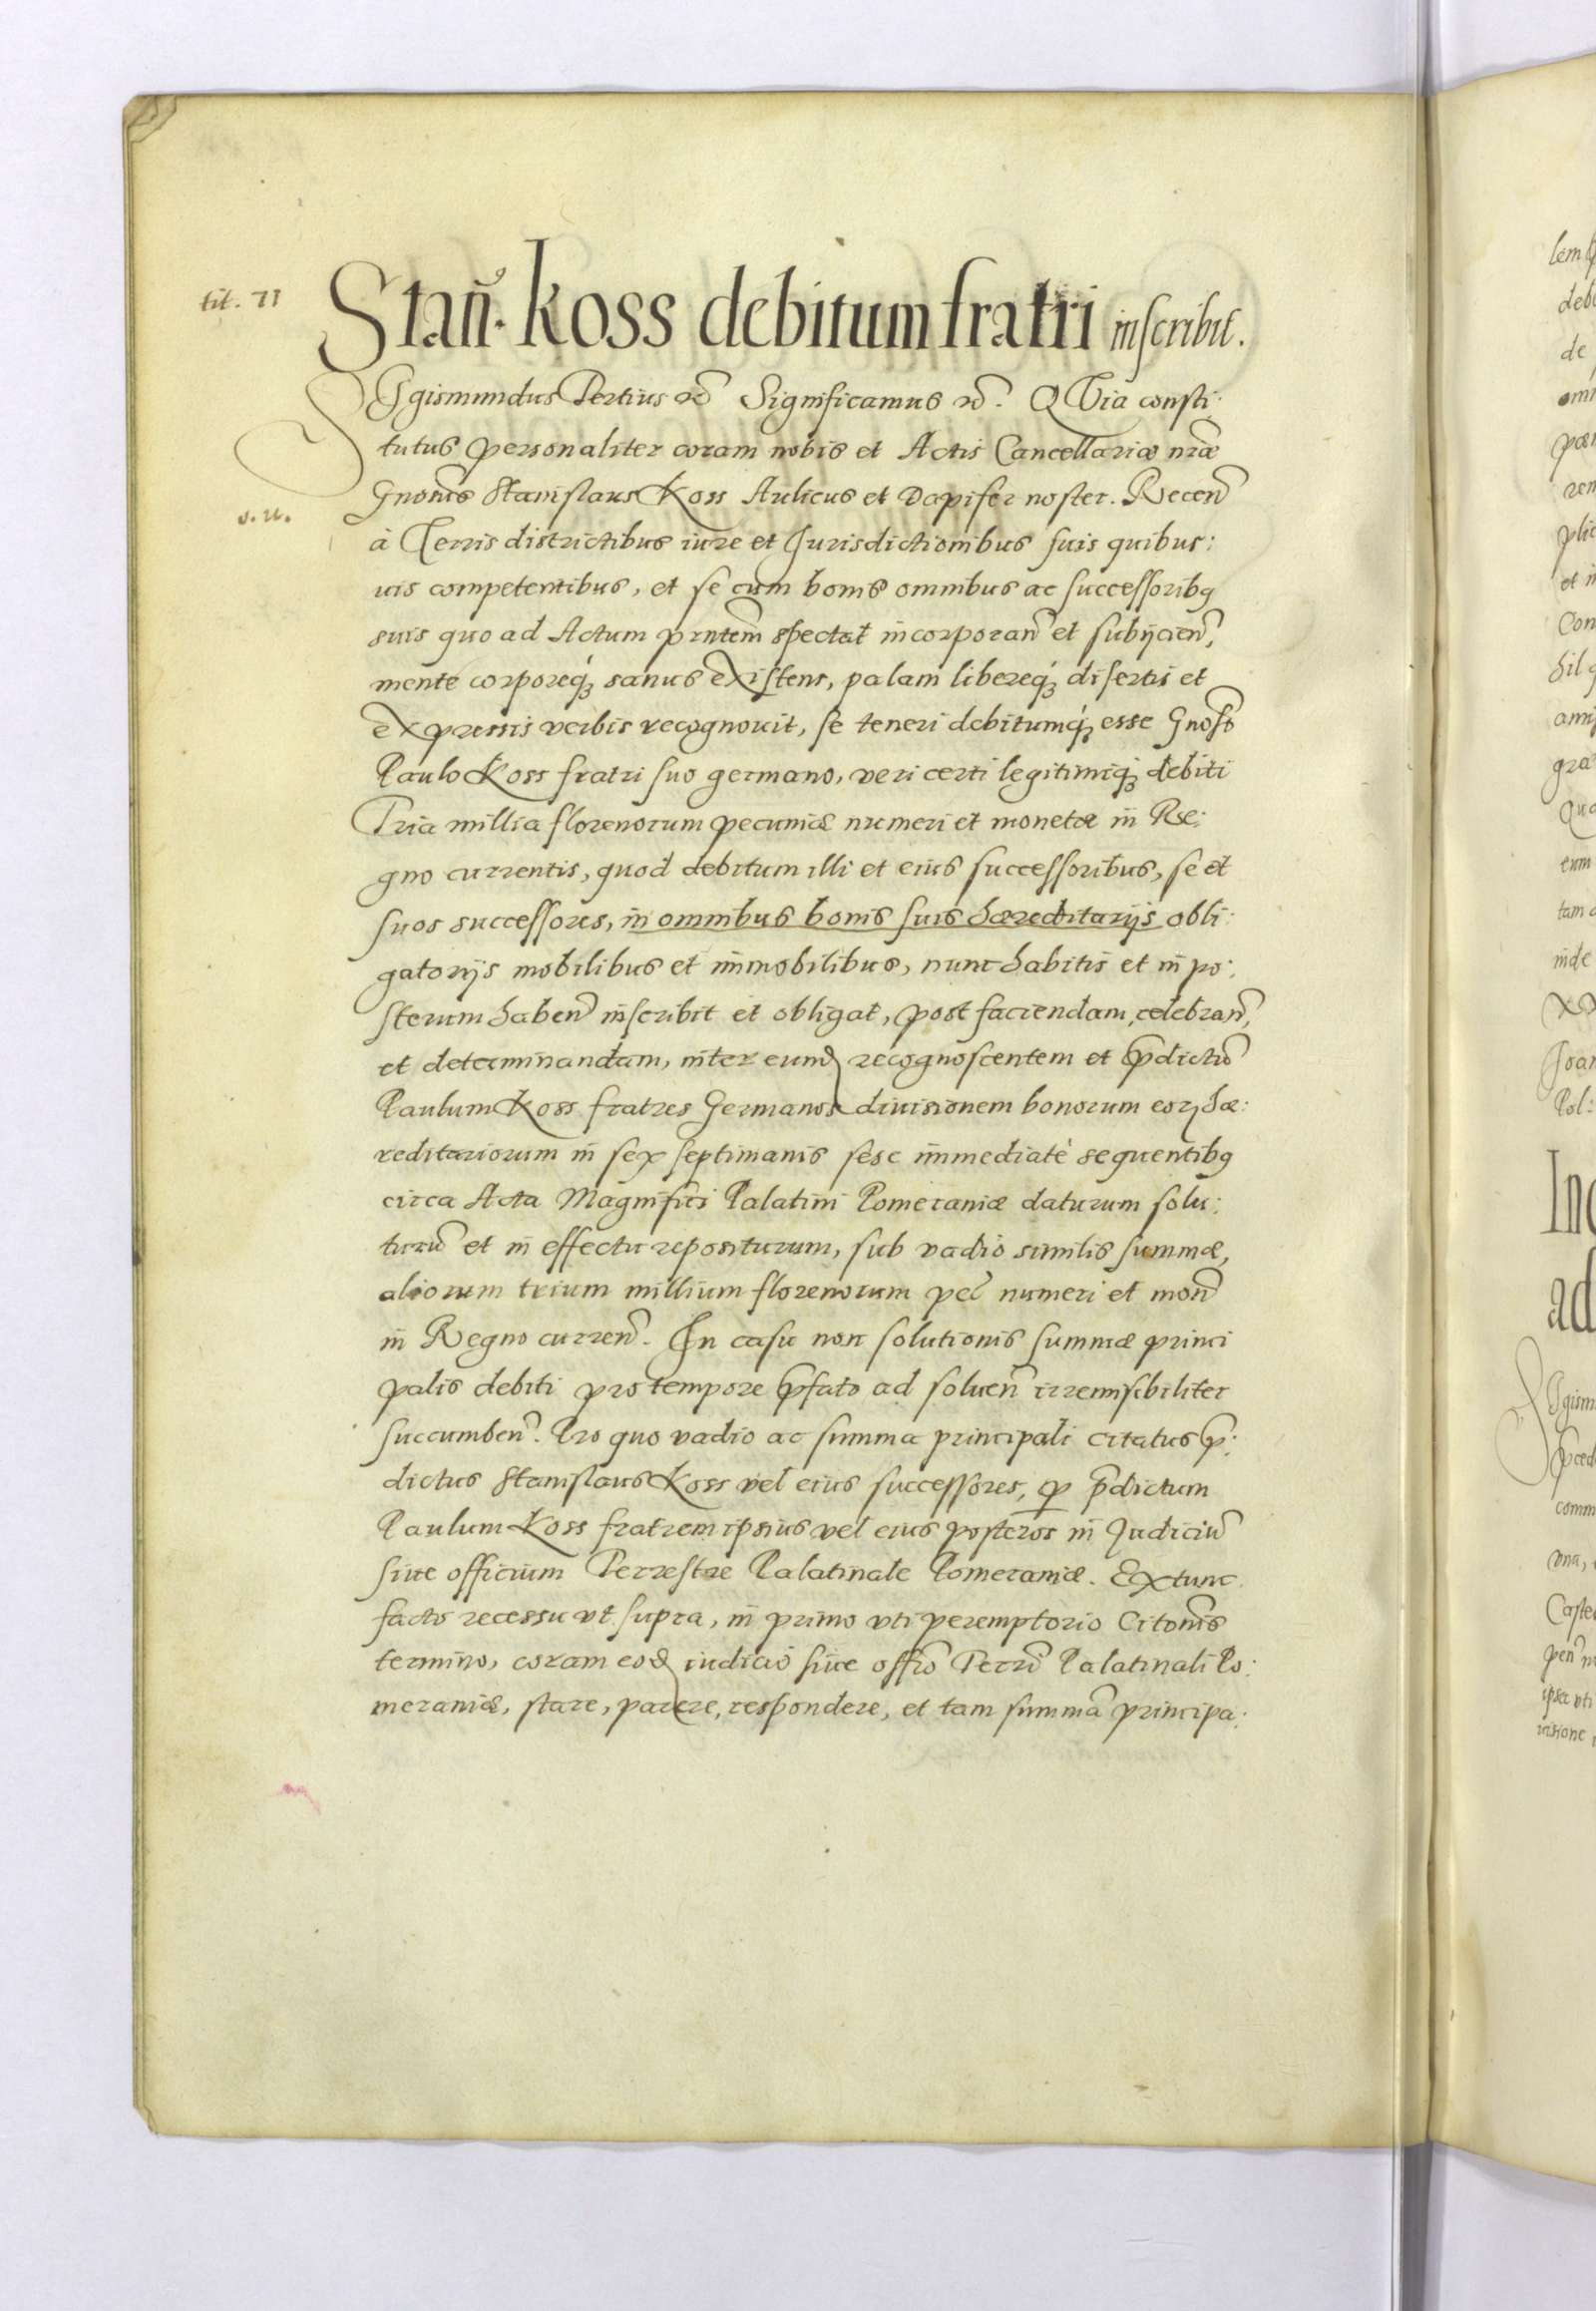 tit. 71
Stañ. Koss debitum fratri inscribit.
SIgismundus Tertius etc̃ Significamus etc̃. QVia consti:
tutus personaliter coram nobis et Actis Cancellariæ nr̃æ
v. u.
Gnosus Stanislaus Koss Aulicus et Dapifer noster. Receñ
à Terris districtibus iure et Jurisdictionibus suis quibus:
uis competentibus, et se cum bonis omnibus ac successoribꝫ
suis quo ad Actum pr̃ntem spectat incorporañ et subijcieñ,
mente corporeqꝫ sanus existens, palam libereqꝫ disertis et
expressis verbis recognouit, se teneri debitumqꝫ esse Gnoso
Paulo Koss fratri suo germano, veri certi legitimiqꝫ debiti
Tria millia florenorum pecuniæ numeri et monetæ in Re:
gno currentis, quod debitum illi et eius successoribus, se et
suos successores, in omnibus bonis suis hæreditarijs obli:
gatorijs mobilibus et immobilibus, nunc habitis et in po:
sterum habeñ inscribit et obligat, post faciendam, celebrañ,
et determinandam, inter eund recognoscentem et p̃dictũ
Paulum Koss fratres Germanos diuisionem bonorum eorꝫ hæ:
reditariorum in sex septimanis sese immediatè sequentibꝫ
circa Acta Magnifici Palatini Pomeraniæ daturum solu:
turũ et in effectu repositurum, sub vadio similis summæ,
aliorum trium millium florenorum pec̃ numeri et moñ
in Regno curreñ. In casu non solutionis summæ princi
palis debiti pro tempore p̃fato ad solueñ irremisibiliter
succumbeñ. Pro quo vadio ac summa principali citatus p̃:
dictus Stanislaus Koss vel eius successores, ꝑ p̃dictum
Paulum Koss fratrem ipsius vel eius posteros in Judiciũ
siue officium Terrestre Palatinale Pomeraniæ. Extunc
facto recessu vt supra, in primo vti peremptorio Citonis
termino, coram eod iudicio siue offio Terrĩ Palatinali Po:
meraniæ, stare, parere, respondere, et tam summã principa: